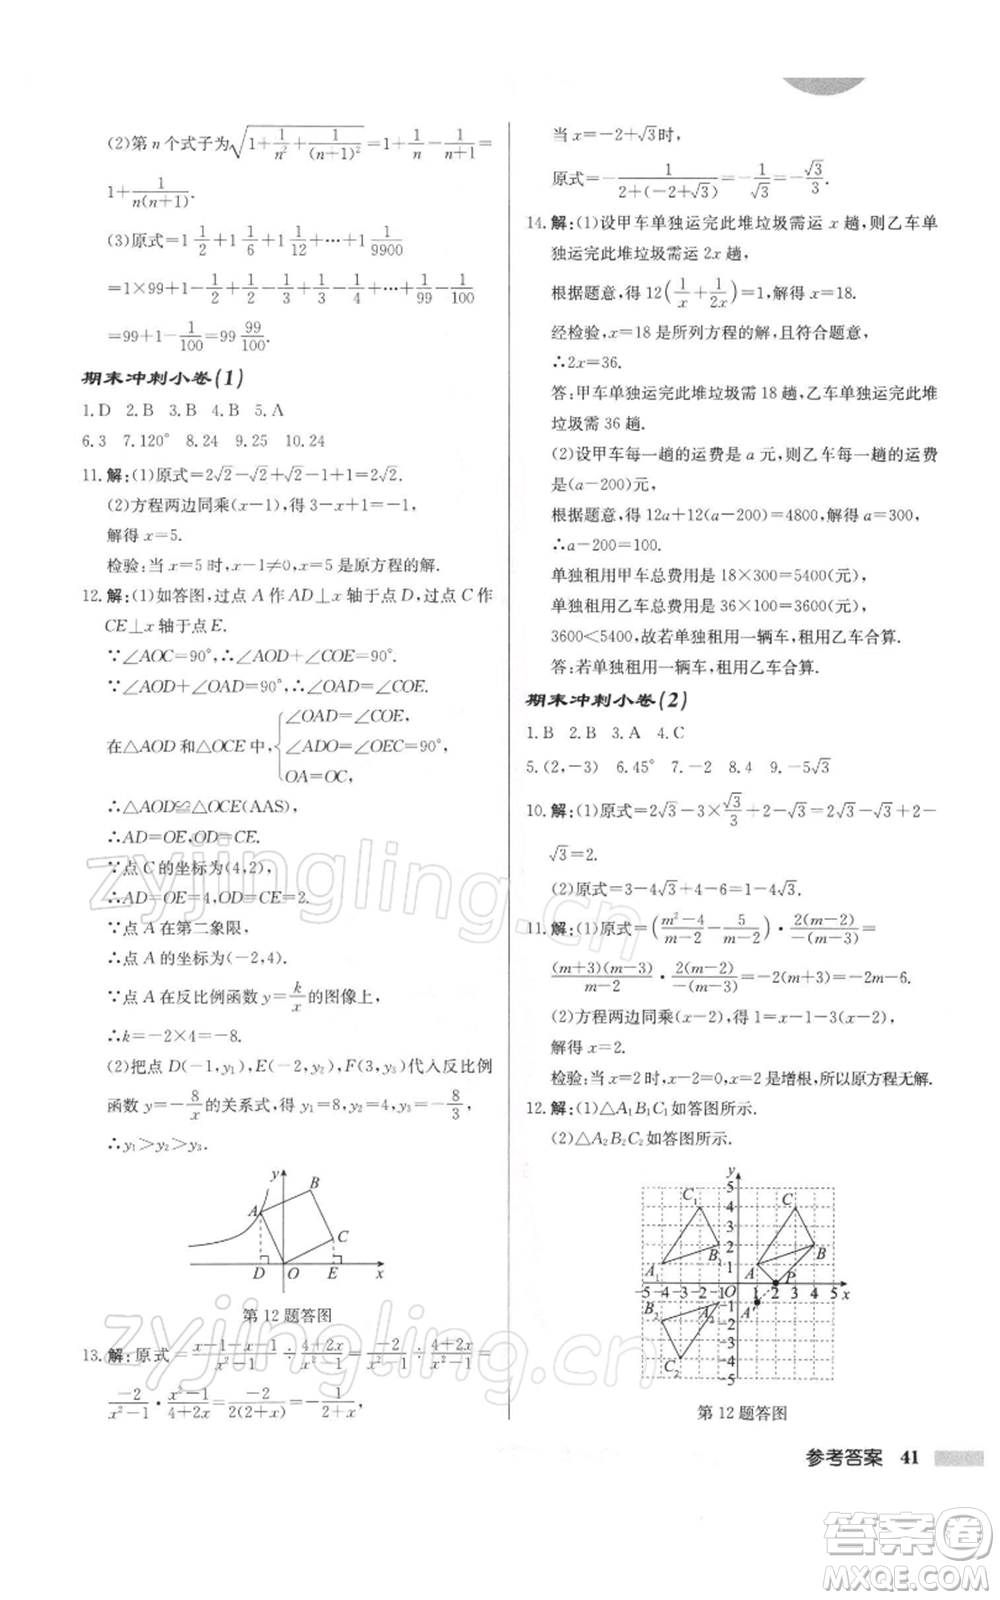 (2)第 n 个式子为√(1+1/n²+1/(n+1)²)=1+1/n-1/(n+1)=
1+1/n(n+1).
(3)原式=1 1/2+1 1/6+1 1/12+…+1 1/9900
=1×99+1-1/2+1/2-1/3+1/3-1/4+…+1/99-1/100
=99+1-1/100=99 99/100.
期末冲刺小卷(1)
1.D 2.B 3.B 4.B 5.A
6.3 7.120° 8.24 9.25 10.24
11.解:(1)原式=2√2-√2+√2-1+1=2√2.
(2)方程两边同乘(x-1),得 3-x+1=-1,
解得 x=5.
检验:当 x=5 时,x-1≠0,x=5 是原方程的解.
12.解:(1)如答图,过点 A 作 AD⊥x 轴于点 D,过点 C 作
CE⊥x 轴于点 E.
∵∠AOC=90°,∴∠AOD+∠COE=90°.
∵∠AOD+∠OAD=90°,∴∠OAD=∠COE.
∠OAD=∠COE,
在△AOD 和△OCE 中,{∠ADO=∠OEC=90°,
OA=OC,
∴△AOD≌△OCE(AAS),
∴AD=OE,OD=CE.
∵点 C 的坐标为(4,2),
∴AD=OE=4,OD=CE=2.
∵点 A 在第二象限,
∴点 A 的坐标为(-2,4).
∵点 A 在反比例函数 y=k/x 的图像上,
∴k=-2×4=-8.
(2)把点 D(-1,y₁),E(-2,y₂),F(3,y₃)代入反比例
函数 y=-8/x 的关系式,得 y₁=8,y₂=4,y₃=-8/3,
∴y₁>y₂>y₃.
y
B
A
C
D O E x
第 12 题答图
13.解:原式=(x-1-x-1)/(x²-1)÷(4+2x)/(x²-1)=-2/(x²-1)÷(4+2x)/(x²-1)=
-2/(x²-1)·(x²-1)/(4+2x)=-2/2(2+x)=-1/(2+x),
当 x=-2+√3时,
原式=-1/(2+(-2+√3))=-1/√3=-√3/3.
14.解:(1)设甲车单独运完此堆垃圾需运 x 趟,则乙车单
独运完此堆垃圾需运 2x 趟,
根据题意,得 12(1/x+1/2x)=1,解得 x=18.
经检验,x=18 是所列方程的解,且符合题意,
∴2x=36.
答:甲车单独运完此堆垃圾需 18 趟,乙车单独运完此堆
垃圾需 36 趟.
(2)设甲车每一趟的运费是 a 元,则乙车每一趟的运费
是(a-200)元,
根据题意,得 12a+12(a-200)=4800,解得 a=300,
∴a-200=100.
单独租用甲车总费用是 18×300=5400(元),
单独租用乙车总费用是 36×100=3600(元),
3600<5400,故若单独租用一辆车,租用乙车合算.
答:若单独租用一辆车,租用乙车合算.
期末冲刺小卷(2)
1.B 2.B 3.A 4.C
5.(2,-3) 6.45° 7.-2 8.4 9.-5√3
10.解:(1)原式=2√3-3×√3/3+2-√3=2√3-√3+2-
√3=2.
(2)原式=3-4√3+4-6=1-4√3.
11.解:(1)原式=((m²-4)/(m-2)-5/(m-2))·2(m-2)/-(m-3)=
(m+3)(m-3)/(m-2)·2(m-2)/-(m-3)=-2(m+3)=-2m-6.
(2)方程两边同乘(x-2),得 1=x-1-3(x-2),
解得 x=2.
检验:当 x=2 时,x-2=0,x=2 是增根,所以原方程无解.
12.解:(1)△A₁B₁C₁如答图所示.
(2)△A₂B₂C₂如答图所示.
y
5
C₁ 4 C
3
B₁ 2 B
A₁ 1 A P
-5 -4 -3 -2 -1 O 1 2 3 4 5 x
B₂ A₂ -1 A′
-2
-3
C₂ -4
-5
第 12 题答图
参考答案 41
zyjingling.cn
zyjingling.cn
答案卷
MXQE.COM